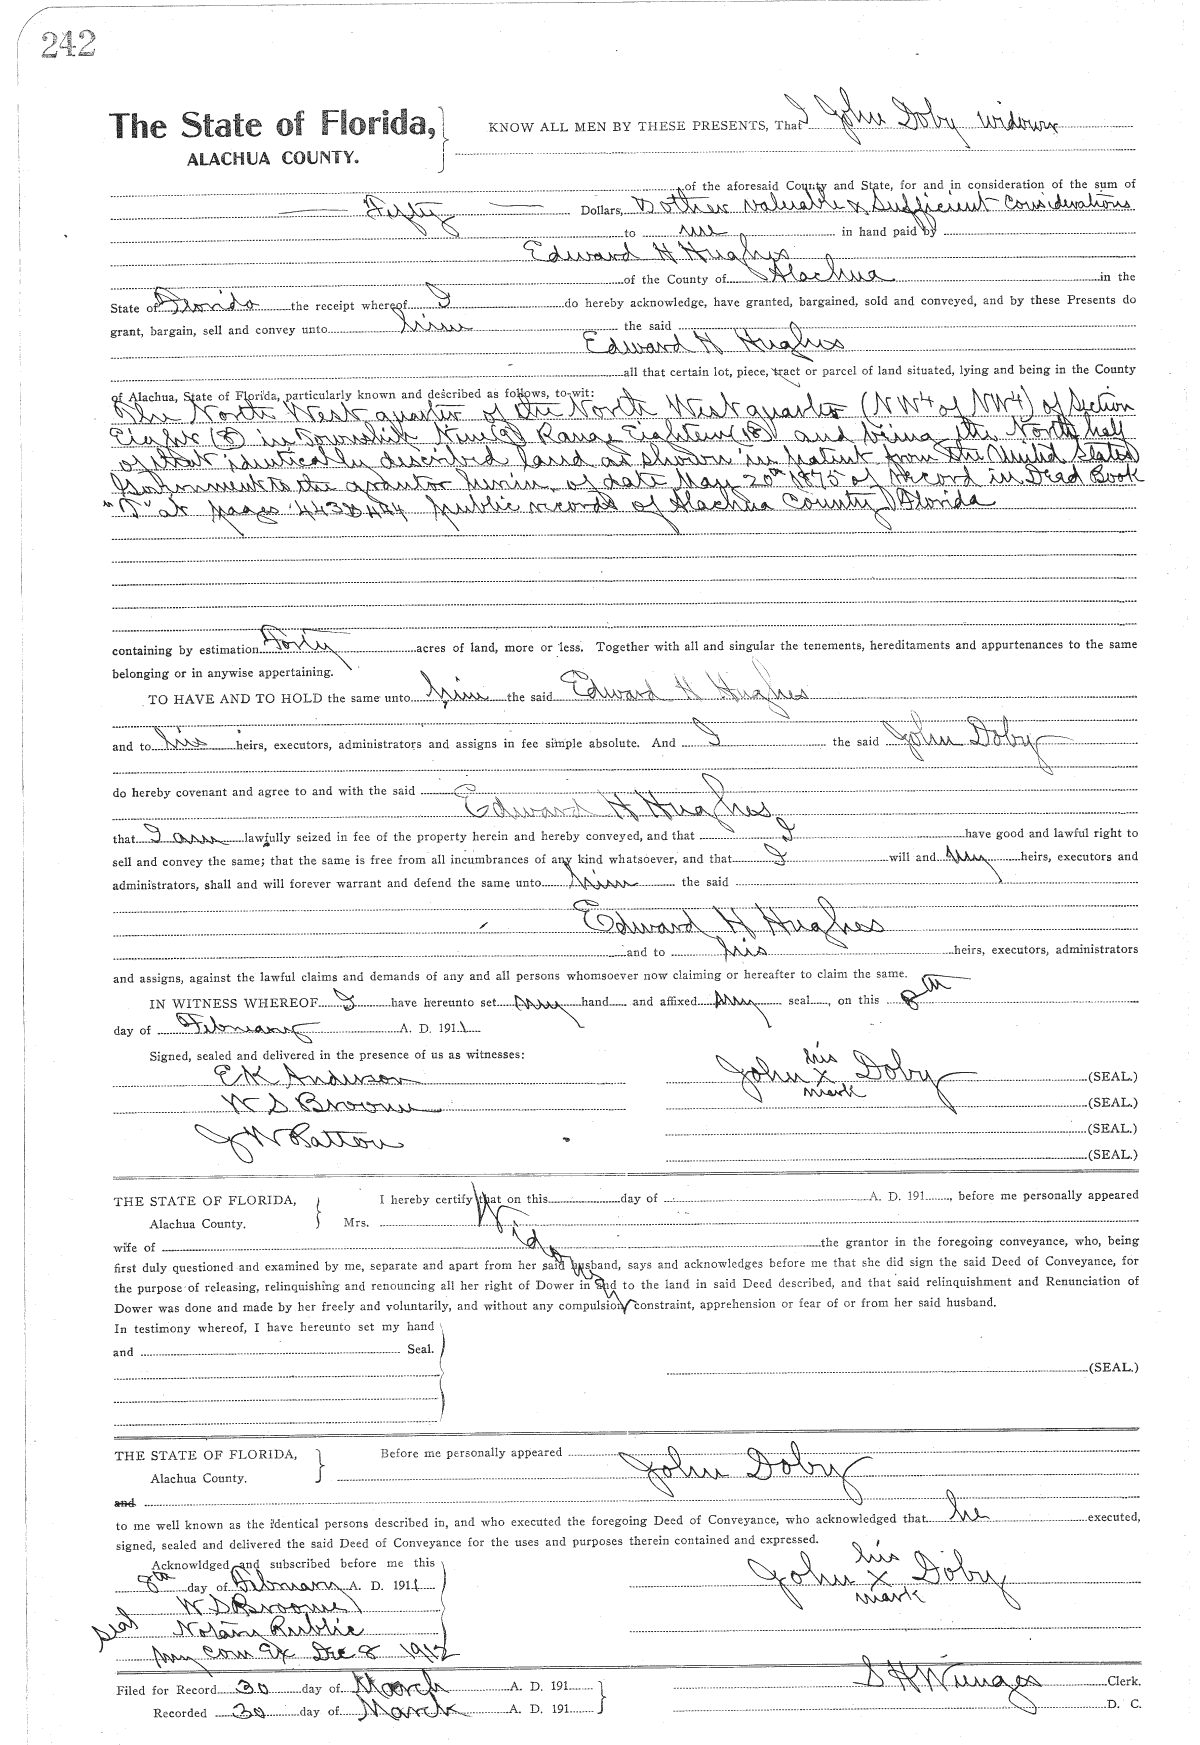 242
The State of Florida,
ALACHUA COUNTY.
KNOW ALL MEN BY THESE PRESENTS, That I John Doby widower
of the aforesaid County and State, for and in consideration of the sum of
Fifty Dollars, & other valuable & sufficient considerations
to me in hand paid by
Edward H Hughes
of the County of Alachua in the
State of Florida the receipt whereof I do hereby acknowledge, have granted, bargained, sold and conveyed, and by these Presents do
grant, bargain, sell and convey unto him the said
Edward H Hughes
all that certain lot, piece, tract or parcel of land situated, lying and being in the County
of Alachua, State of Florida, particularly known and described as follows, to-wit:
The North West quarter of the North West quarter (NW4 of NW4) of Section
Eight (8) in Township Nine (9) Range Eighteen (18) and being the North half
of that identically described land as shown in patent from the United States
Government to the grantor herein, of date May 20th 1875 of record in Deed Book
"T" at pages 443 & 444 public records of Alachua County Florida
containing by estimation Forty acres of land, more or less. Together with all and singular the tenements, hereditaments and appurtenances to the same
belonging or in anywise appertaining.
TO HAVE AND TO HOLD the same unto him the said Edward H Hughes
and to his heirs, executors, administrators and assigns in fee simple absolute. And I the said John Doby
do hereby covenant and agree to and with the said Edward H Hughes
that I am lawfully seized in fee of the property herein and hereby conveyed, and that I have good and lawful right to
sell and convey the same; that the same is free from all incumbrances of any kind whatsoever, and that I will and my heirs, executors and
administrators, shall and will forever warrant and defend the same unto him the said
Edward H Hughes
and to his heirs, executors, administrators
and assigns, against the lawful claims and demands of any and all persons whomsoever now claiming or hereafter to claim the same.
IN WITNESS WHEREOF I have hereunto set my hand and affixed my seal, on this 8th
day of February A. D. 1911
Signed, sealed and delivered in the presence of us as witnesses:
E K Anderson
W S Broome
J W Patton
John his x mark Doby (SEAL.)
(SEAL.)
(SEAL.)
(SEAL.)
THE STATE OF FLORIDA,
Alachua County.
I hereby certify that on this day of A. D. 191, before me personally appeared
Mrs.
Widower
wife of the grantor in the foregoing conveyance, who, being
first duly questioned and examined by me, separate and apart from her said husband, says and acknowledges before me that she did sign the said Deed of Conveyance, for
the purpose of releasing, relinquishing and renouncing all her right of Dower in and to the land in said Deed described, and that said relinquishment and Renunciation of
Dower was done and made by her freely and voluntarily, and without any compulsion, constraint, apprehension or fear of or from her said husband.
In testimony whereof, I have hereunto set my hand
and Seal.
(SEAL.)
THE STATE OF FLORIDA,
Alachua County.
Before me personally appeared John Doby
and
to me well known as the identical persons described in, and who executed the foregoing Deed of Conveyance, who acknowledged that he executed,
signed, sealed and delivered the said Deed of Conveyance for the uses and purposes therein contained and expressed.
Acknowldged and subscribed before me this
8th day of February A. D. 1911
W S Broome
Seal Notary Public
my com Ex Dec 8 1912
John his x mark Doby
Filed for Record 30 day of March A. D. 191
Recorded 30 day of March A. D. 191
S H Wienges Clerk.
D. C.